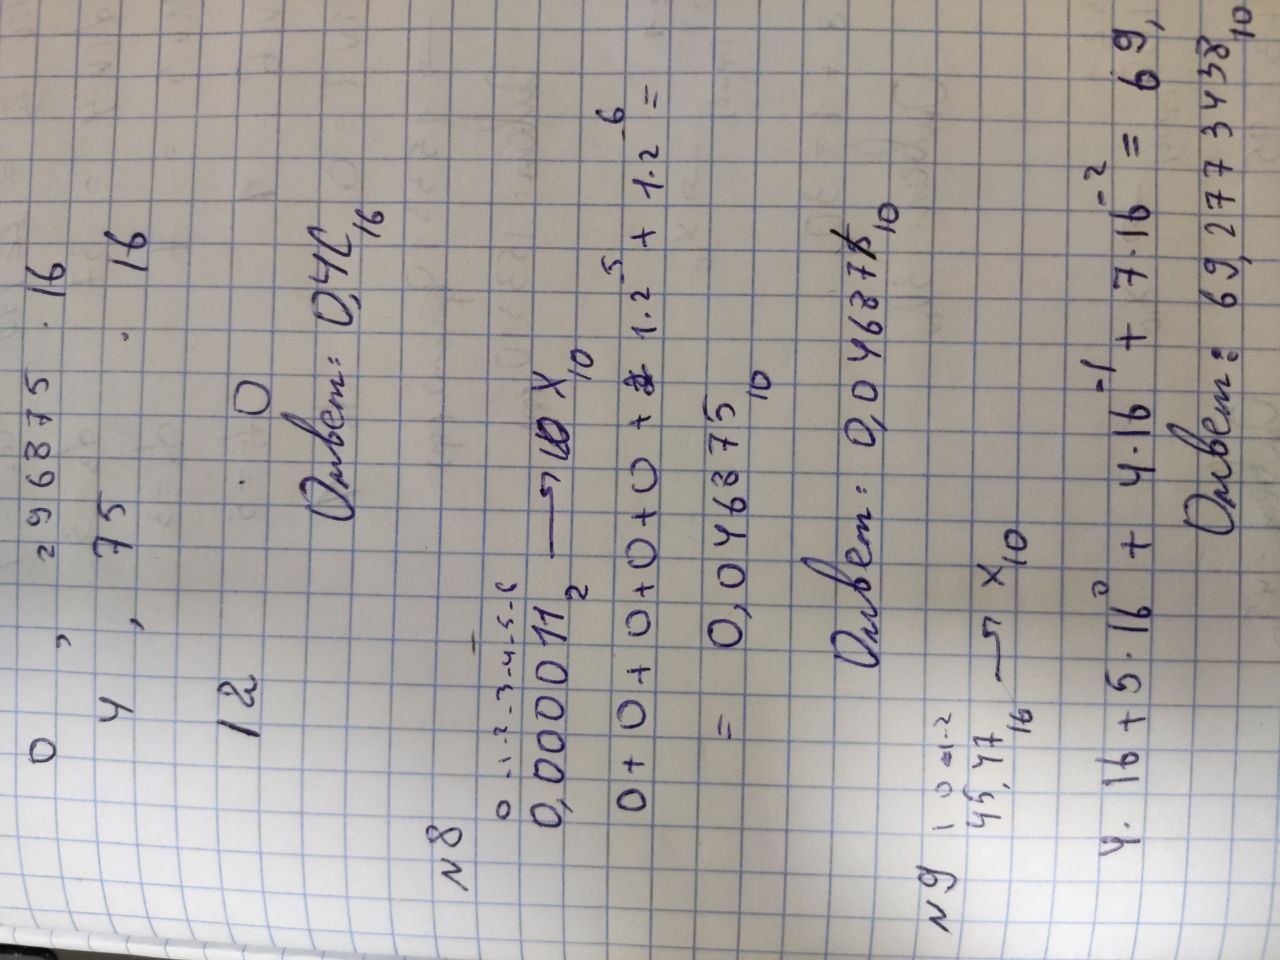 0, 296875 · 16
4, 75 · 16
12 · 0
Ответ: 0,4C₁₆
N8
0 -1 -2 -3 -4 -5 -6
0,000011₂ → X₁₀
0 + 0 + 0 + 0 + 0 + 1·2⁻⁵ + 1·2⁻⁶ =
= 0,046875₁₀
Ответ: 0,046875₁₀
N9
1 0 -1 -2
45,47₁₆ → X₁₀
4·16 + 5·16⁰ + 4·16⁻¹ + 7·16⁻² = 69,
Ответ: 69,27773438₁₀